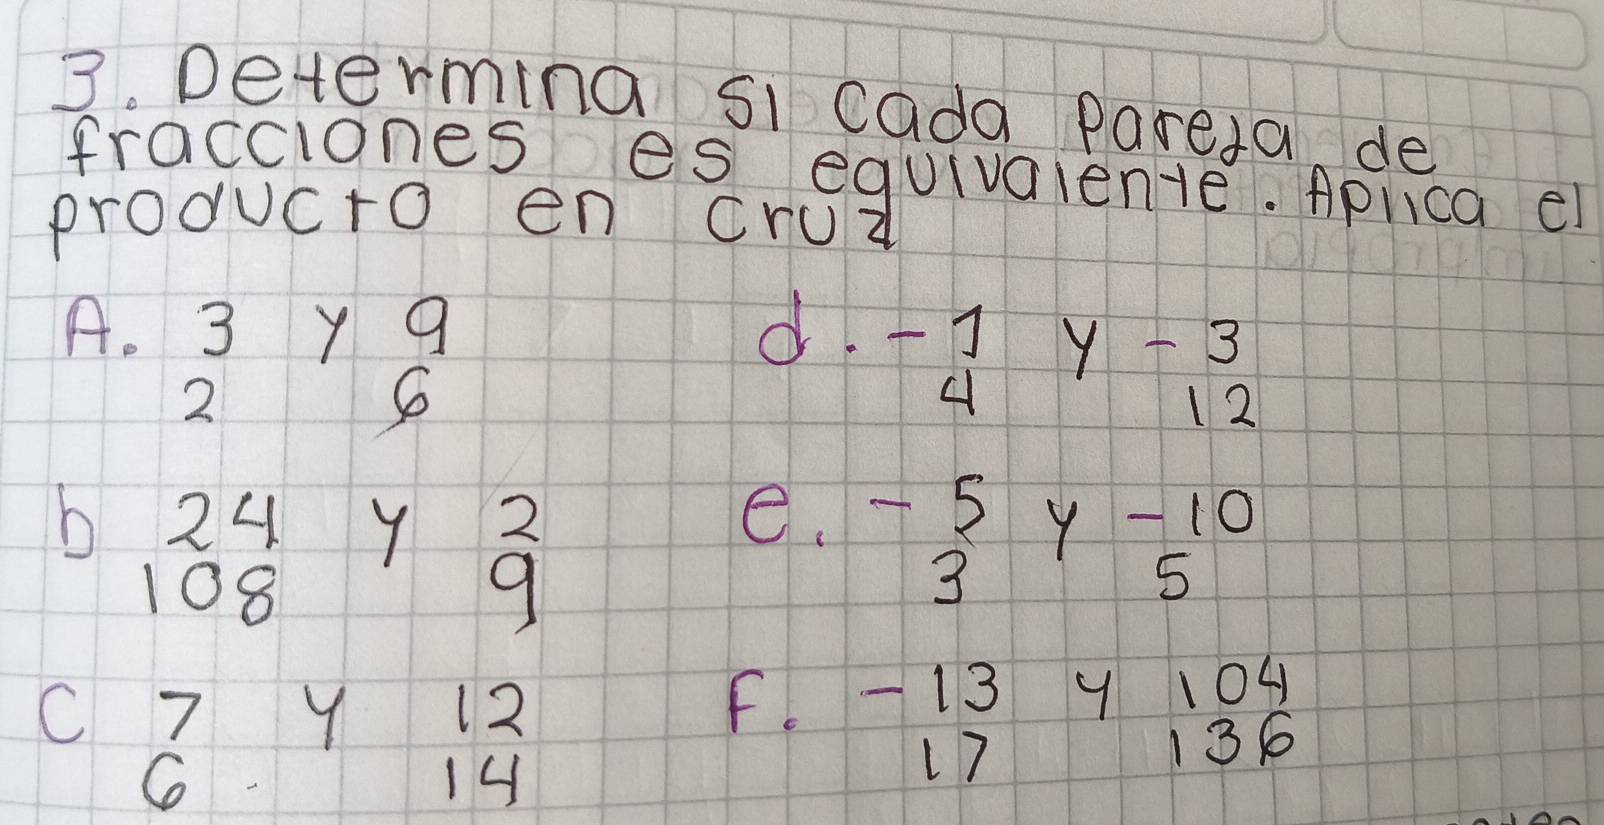 3. Determina si cada pareja de
fracciones es equivalente. Aplica el
producto en cruz
A. 3 y 9
2 6
d. - 1 y - 3
4 12
b 24 y 2
108 9
e. - 5 y - 10
3 5
C 7 y 12
6 14
F. - 13 y 104
17 136